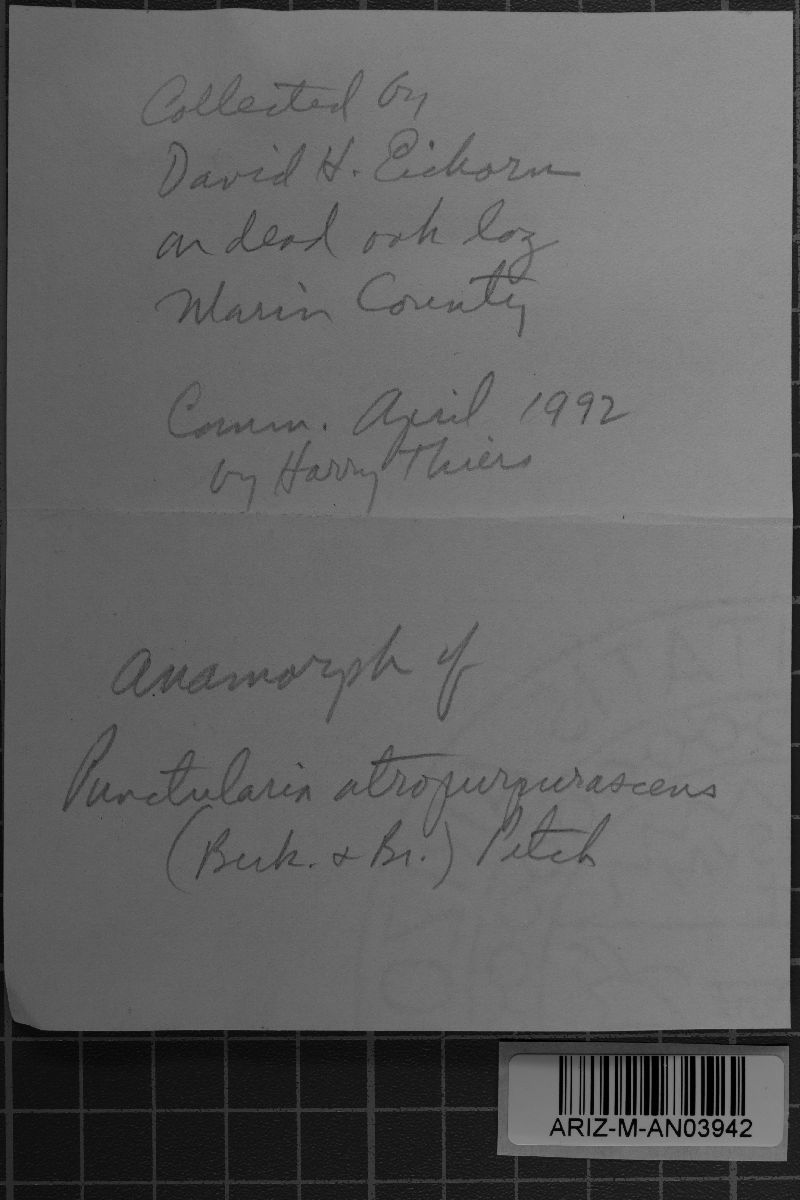 Collected by
David H. Eichorn
on dead oak log
Marin County
Comm. April 1992
by Harry Thiers
Anamorph of
Punctularia atropurpurascens
(Berk. & Br.) Petch
ARIZ-M-AN03942